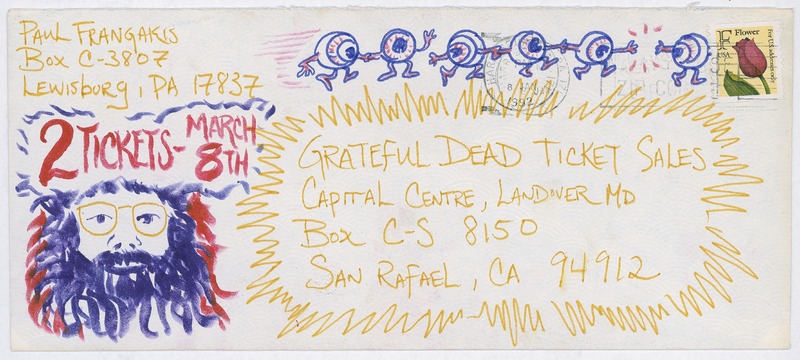 PAUL FRANGAKIS
BOX C-3807
LEWISBURG, PA 17837
2 TICKETS - MARCH 8TH
F Flower
USA
For U.S. addresses only
1992
GRATEFUL DEAD TICKET SALES
CAPITAL CENTRE, LANDOVER MD
BOX C-S 8150
SAN RAFAEL, CA 94912